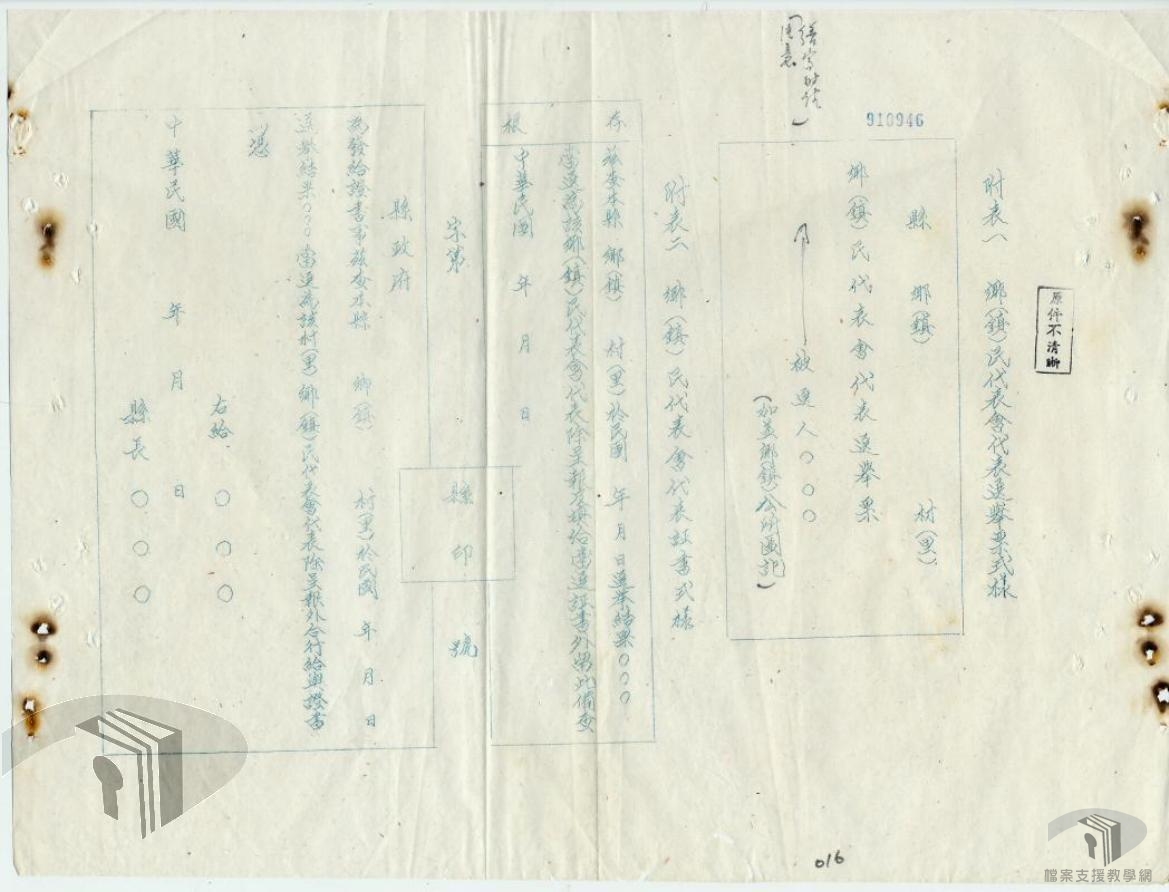 原件不清晰
附表一　鄉(鎮)民代表會代表選舉票式樣
910946
縣　鄉(鎮)　村(里)
鄉(鎮)民代表會代表選舉票
被選人〇〇〇
(如蓋鄉(鎮)公所圖記)
附表二　鄉(鎮)民代表會代表証書式樣
存根
茲查本縣　鄉(鎮)　村(里)於民國　年　月　日選舉結果〇〇〇
當選為該鄉(鎮)民代表會代表除呈報及填給當選證書外留此備查
中華民國　年　月　日
字第　縣印　號
縣政府
為發給證書事茲查本縣　鄉(鎮)　村(里)於民國　年　月　日
選舉結果〇〇〇當選為該村(里)鄉(鎮)民代表會代表除呈報外合行給與證書
憑
右給　〇〇〇
中華民國　年　月　日
縣長　〇〇〇
016
檔案支援教學網